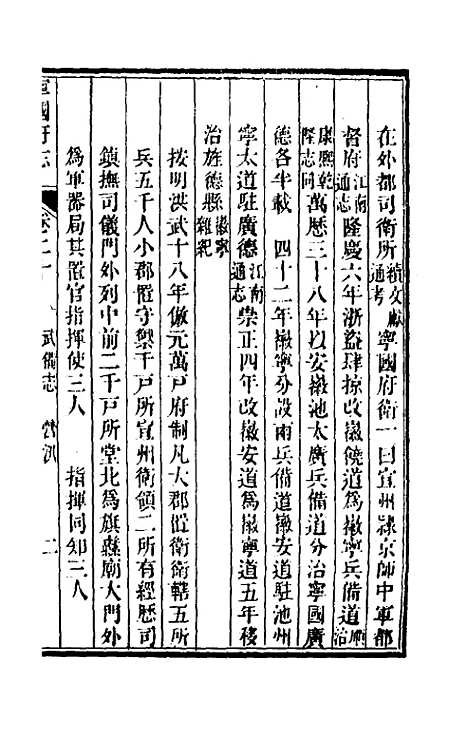 在外都司衛所續文獻通考寧國府衛一曰宣州隸京師中軍都
督府江南通志隆慶六年浙盜肆掠改徽饒道為徽寧兵備道順治
康熙乾隆志同萬歷三十八年以安徽池太廣兵備道分治寧國廣
德各半載　四十二年徽寧分設兩兵備道徽安道駐池州
寧太道駐廣德江南通志崇正四年改徽安道為徽寧道五年移
治旌德縣徽寧雜紀
按明洪武十八年倣元萬戶府制凡大郡置衛衛轄五所
兵五千人小郡置守禦千戶所宣州衛領二所有經歷司
鎮撫司儀門外列中前二千戶所堂北為旗纛廟大門外
為軍器局其置官指揮使三人　指揮同知三人
寧國府志　卷二十　武備志　營汛　二